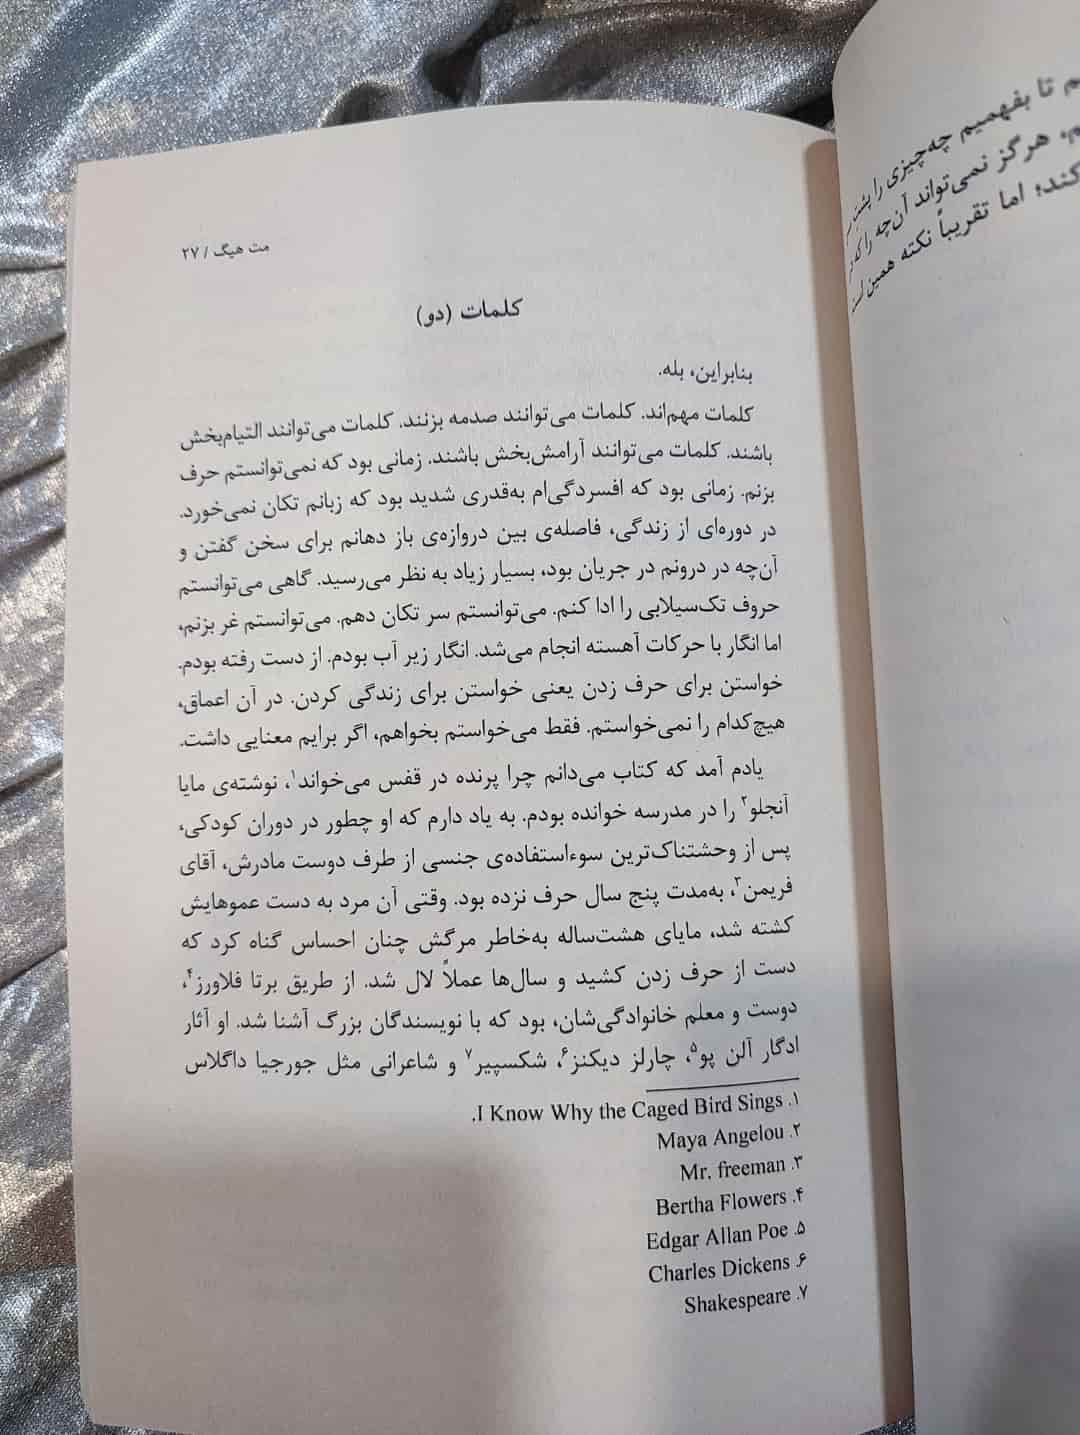 مت هیگ / ۲۷
کلمات (دو)
بنابراین، بله.
کلمات مهم‌اند. کلمات می‌توانند صدمه بزنند. کلمات می‌توانند التیام‌بخش
باشند. کلمات می‌توانند آرامش‌بخش باشند. زمانی بود که نمی‌توانستم حرف
بزنم. زمانی بود که افسردگی‌ام به‌قدری شدید بود که زبانم تکان نمی‌خورد.
در دوره‌ای از زندگی، فاصله‌ی بین دروازه‌ی باز دهانم برای سخن گفتن و
آن‌چه در درونم در جریان بود، بسیار زیاد به نظر می‌رسید. گاهی می‌توانستم
حروف تک‌سیلابی را ادا کنم. می‌توانستم سر تکان دهم. می‌توانستم غر بزنم،
اما انگار با حرکات آهسته انجام می‌شد. انگار زیر آب بودم. از دست رفته بودم.
خواستن برای حرف زدن یعنی خواستن برای زندگی کردن. در آن اعماق،
هیچ‌کدام را نمی‌خواستم. فقط می‌خواستم بخواهم، اگر برایم معنایی داشت.
یادم آمد که کتاب می‌دانم چرا پرنده در قفس می‌خواند۱، نوشته‌ی مایا
آنجلو۲ را در مدرسه خوانده بودم. به یاد دارم که او چطور در دوران کودکی،
پس از وحشتناک‌ترین سوءاستفاده‌ی جنسی از طرف دوست مادرش، آقای
فریمن۳، به‌مدت پنج سال حرف نزده بود. وقتی آن مرد به دست عموهایش
کشته شد، مایای هشت‌ساله به‌خاطر مرگش چنان احساس گناه کرد که
دست از حرف زدن کشید و سال‌ها عملاً لال شد. از طریق برتا فلاورز۴،
دوست و معلم خانوادگی‌شان، بود که با نویسندگان بزرگ آشنا شد. او آثار
ادگار آلن پو۵، چارلز دیکنز۶، شکسپیر۷ و شاعرانی مثل جورجیا داگلاس
۱. I Know Why the Caged Bird Sings.
۲. Maya Angelou
۳. Mr. freeman
۴. Bertha Flowers
۵. Edgar Allan Poe
۶. Charles Dickens
۷. Shakespeare
تا بفهمیم چه‌چیزی را پشت
هرگز نمی‌تواند آن‌چه را که
کند؛ اما تقریباً نکته همین